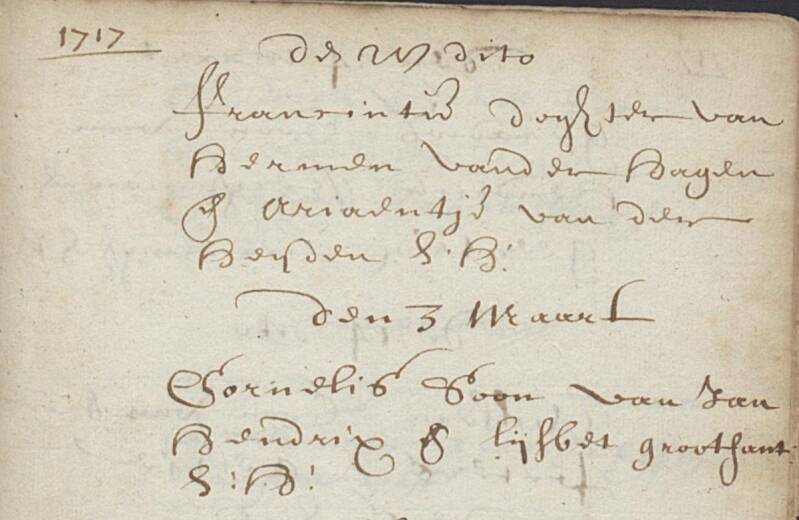 1717
den dito
Francintie doghter van
Hermen vander Hagen
& Ariaentje van der
Heijden E: H:
Den 3 Maart
Cornelis Soon van Jan
Hendrix & lijsbet groothant
E: H: